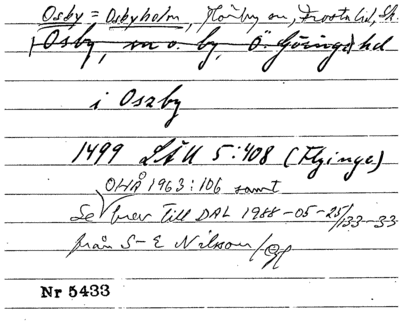 Osby = Osbyholm, Hörby sn, Frosta hd, Sk.
Osby, sn o. by, Ö. Göinge hd
i Oszby
1499 LÄU 5:408 (Flyinge)
OHÅ 1963:106 samt
Se brev till DAL 1988-05-25/133-33
från S-E Nilsson/
Nr 5433